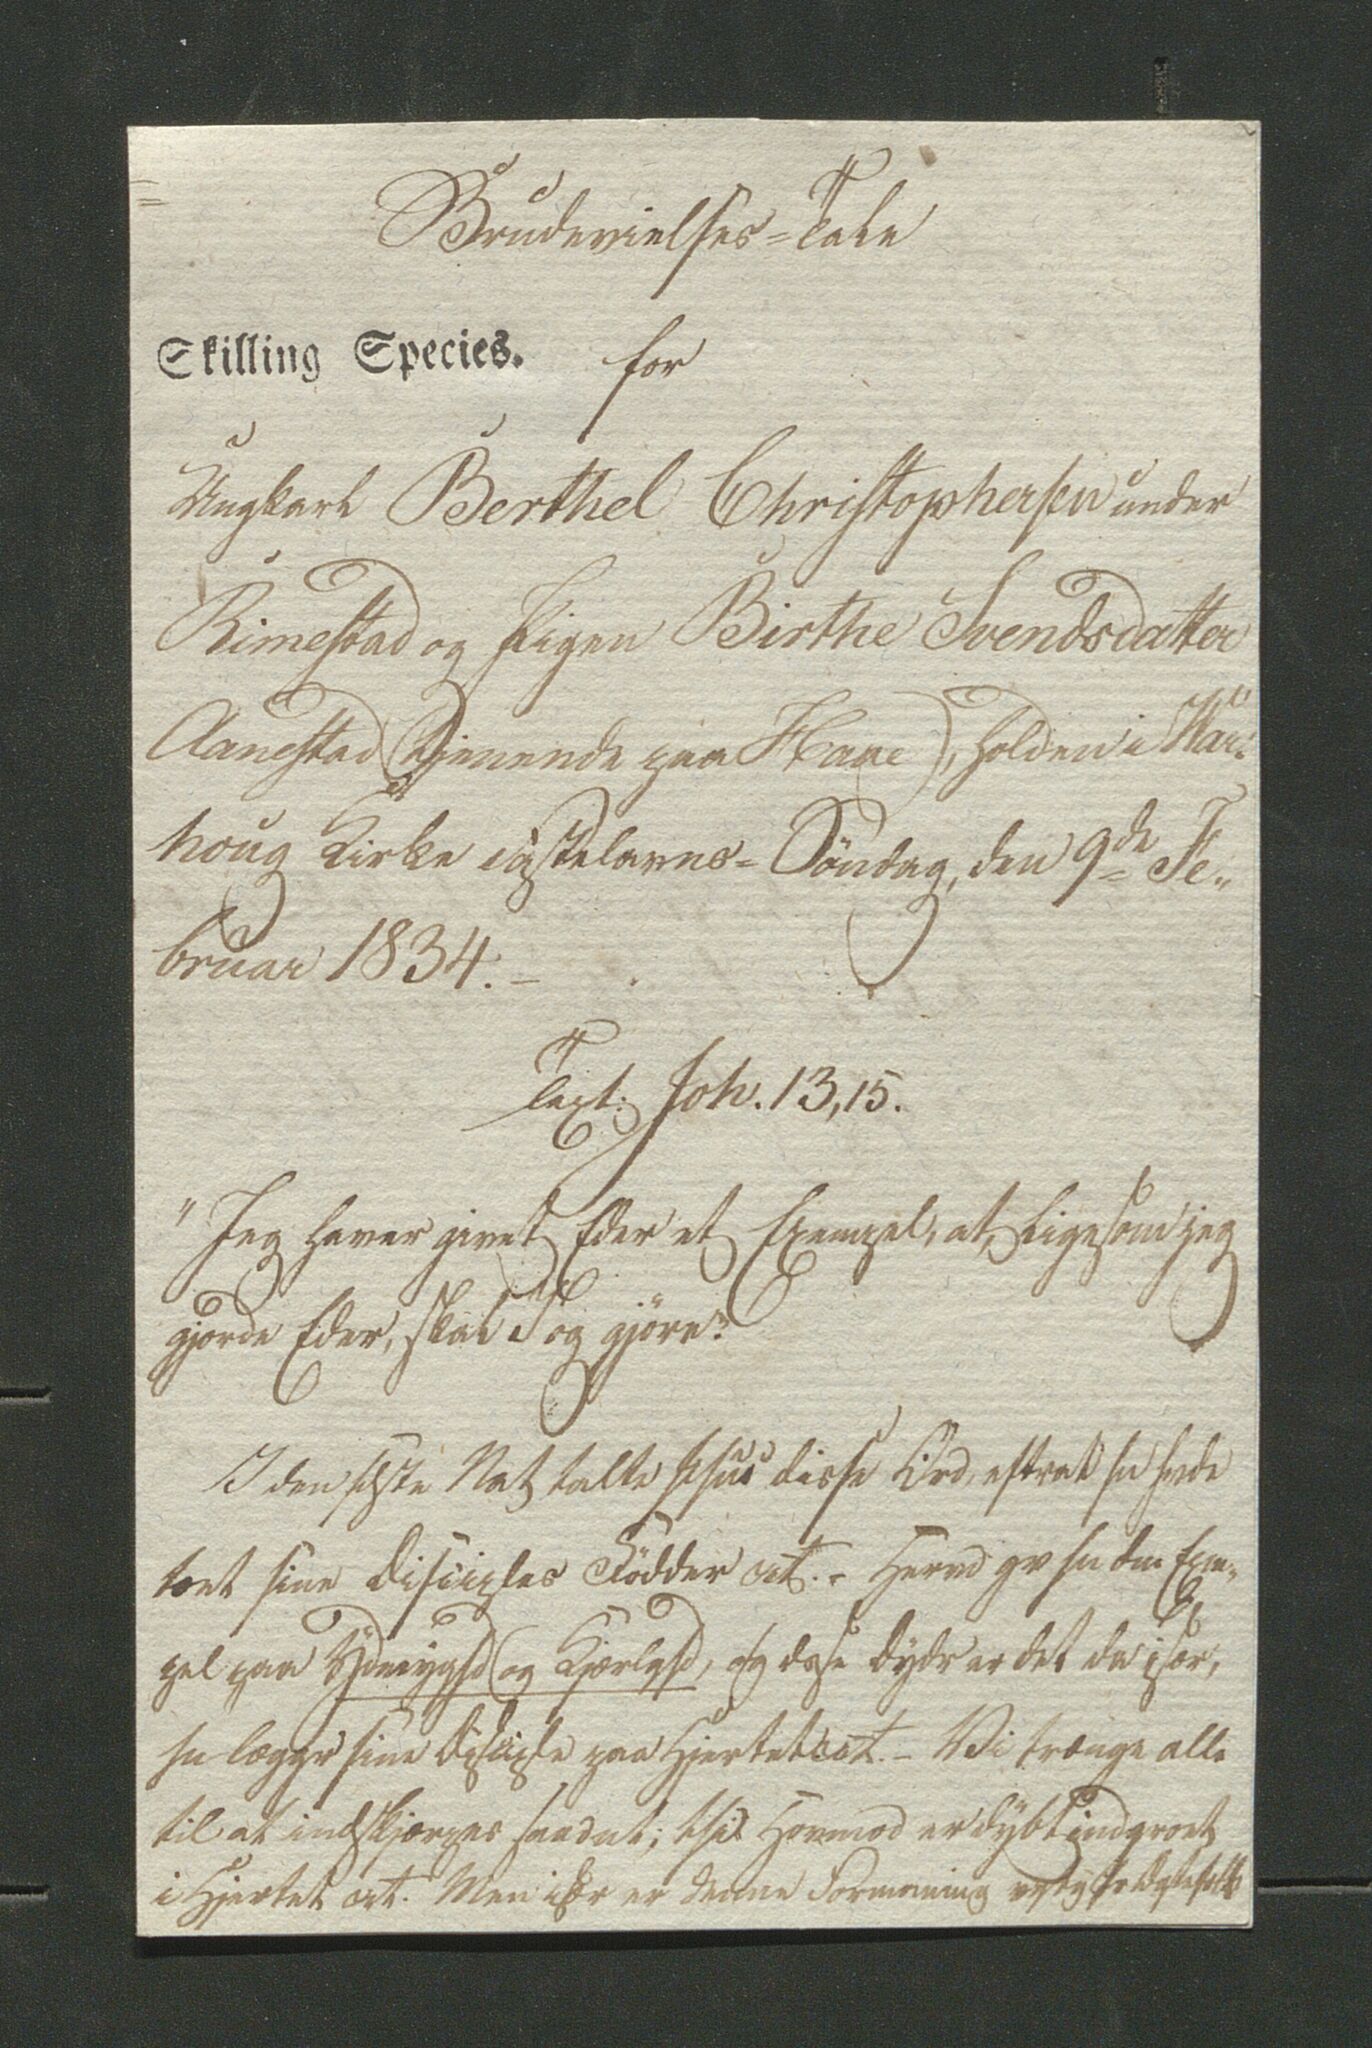 Brudevielses-Tale
Skilling Species. for
Ungkarl Berthel Christophersen under
Rimestad og Pigen Birthe Svendsdatter
Aanestad (tjenende paa Haae), holden i Var-
houg Kirke Fastelavns-Søndag, den 9de Fe-
bruar 1834.-
Text: Joh. 13,15.
"Jeg haver givet Eder et Exempel, at, ligesom jeg
gjorde Eder, skal I og gjøre".
I den sidste Nat talte Jesus disse Ord, efterat h hvde
toet sine Disciples Fødder oct.- Herved gv hn dm Exem-
pel paa Ydmyghd og Kjærlighd, og disse Dyder er det da især,
hn lægger sine Disciple paa Hjertet oct.- Vi trænge alle
til at indskjærpes saadnt; thi Hovmod er dybt indgroet
i Hjertet oct. Men især er denne Formaning vigtig for Ægtefolk